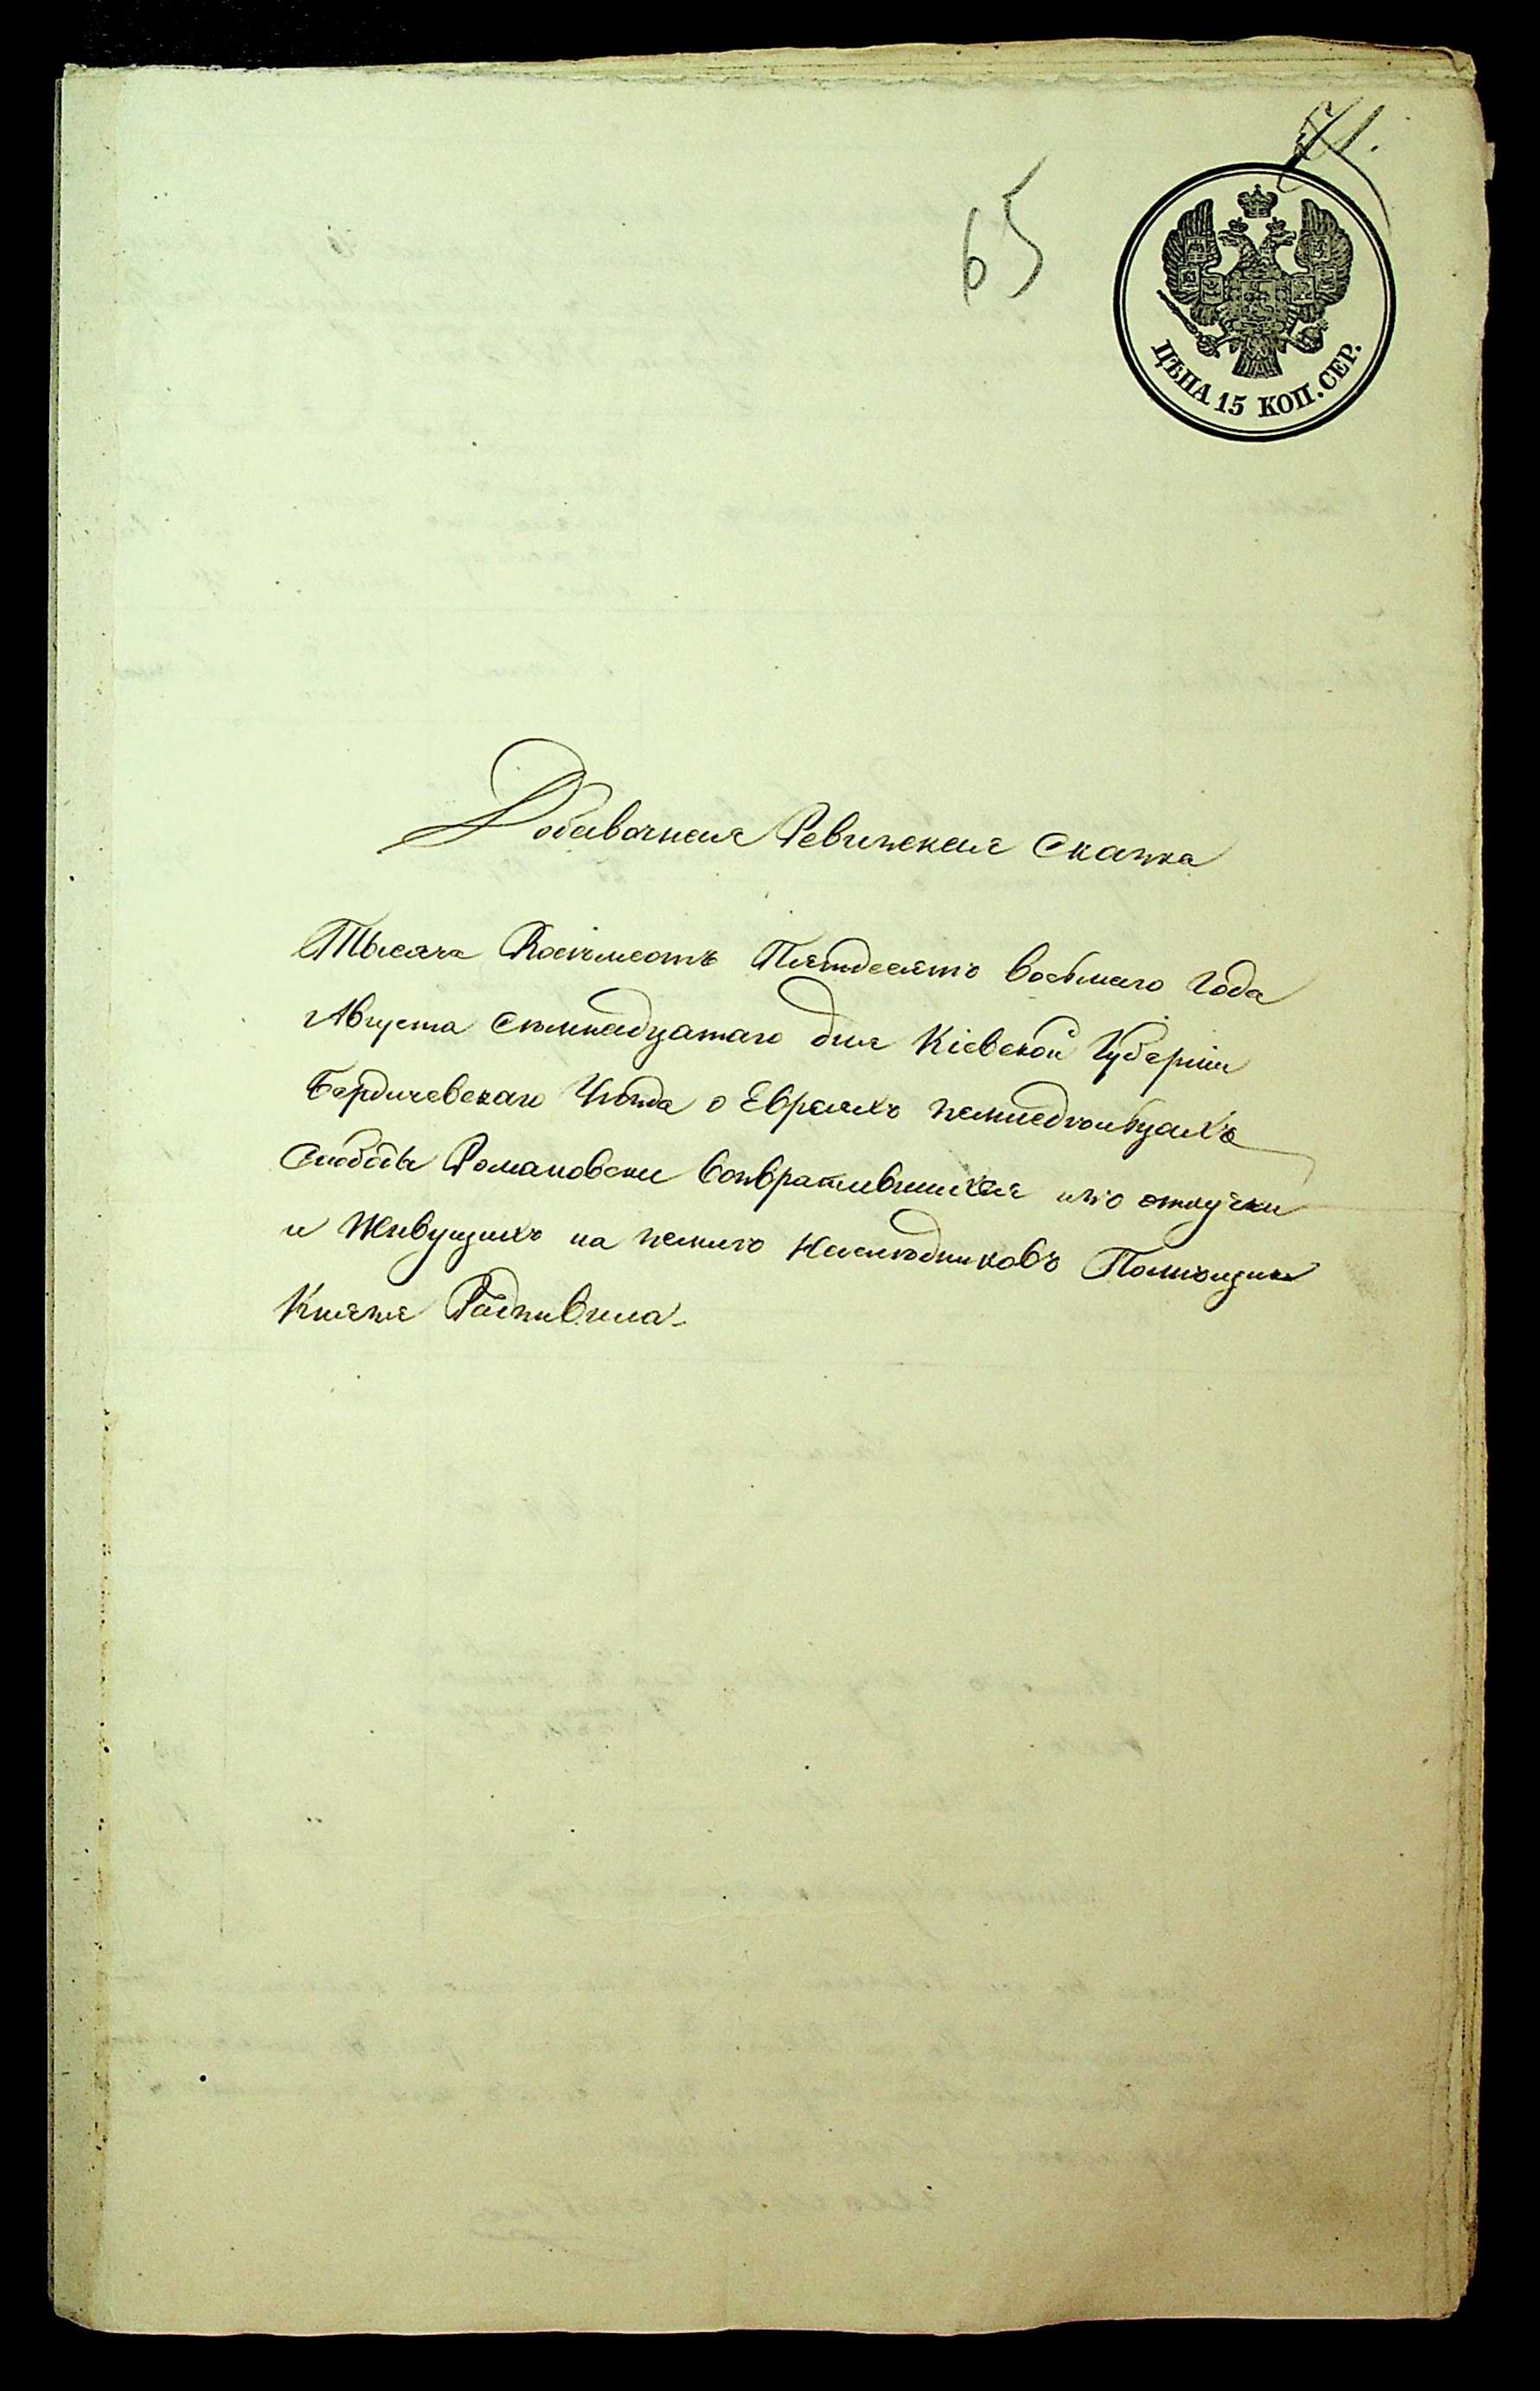 65
ЦѢНА 15 КОП. СЕР.
Добавочная Ревизская Сказка
Тысяча Восемьсотъ Пятдесятъ восьмаго Года
Августа Семнадцатаго дня Кіевской Губерніи
Бердичевскаго Уѣзда о Евреяхъ земледѣльцахъ
Слободы Романовки возвратившихся изъ отлучки
и Живущихъ на земли Наслѣдниковъ Помѣщика
Князя Радзивила